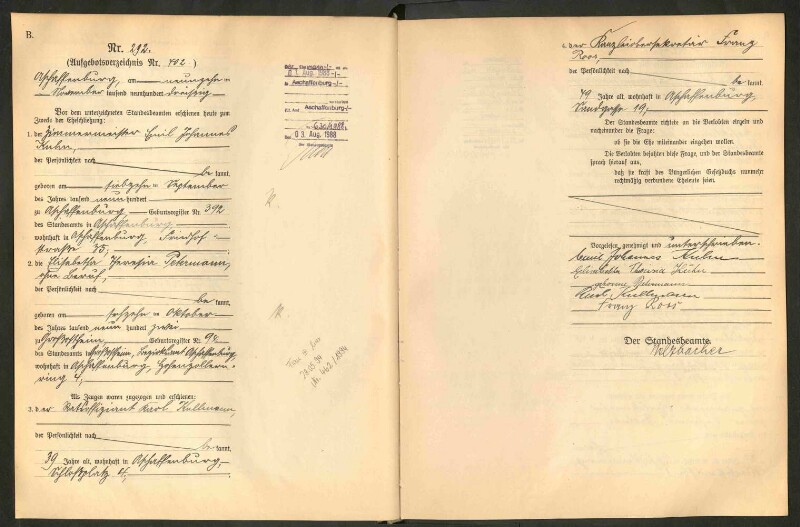 B.
Nr. 292.
(Aufgebotsverzeichnis Nr. 402)
Aschaffenburg, am neunzehn
November tausend neunhundert dreissig.
Vor dem unterzeichneten Standesbeamten erschienen heute zum
Zwecke der Eheschließung:
1. der Zimmermeister Emil Johannes
Kuhn,
der Persönlichkeit nach
be kannt,
geboren am siebzehn September
des Jahres tausend neunhundert
zu Aschaffenburg, Geburtsregister Nr. 392
des Standesamts in Aschaffenburg
wohnhaft in Aschaffenburg, Friedhof-
straße
2. die Elisabetha Theresia Petermann,
ohne Beruf,
der Persönlichkeit nach
be kannt,
geboren am sechzehn Oktober
des Jahres tausend neun hundert zwei
zu Großostheim, Geburtsregister Nr. 92
des Standesamts in Großostheim, Bezirksamt Aschaffenburg,
wohnhaft in Aschaffenburg, Hohenzollern-
ring
Als Zeugen waren zugezogen und erschienen:
3. der Karl Kullmann,
der Persönlichkeit nach
be kannt,
39 Jahre alt, wohnhaft in Aschaffenburg,
Schloßplatz 4,
03. Aug. 1988
Aschaffenburg
Aschaffenburg
03. Aug. 1988
4. der Kanzleiobersekretär Franz
Roos,
der Persönlichkeit nach
be kannt,
49 Jahre alt, wohnhaft in Aschaffenburg,
Sandgasse 19,
Der Standesbeamte richtete an die Verlobten einzeln und
nacheinander die Frage:
ob sie die Ehe miteinander eingehen wollen.
Die Verlobten bejahten diese Frage, und der Standesbeamte
sprach hierauf aus,
daß sie kraft des Bürgerlichen Gesetzbuchs nunmehr
rechtmäßig verbundene Eheleute seien.
Vorgelesen, genehmigt und unterschrieben.
Emil Johannes Kuhn
Elisabetha Theresia Kuhn
geborene Petermann
Karl Kullmann
Franz Roos
Der Standesbeamte